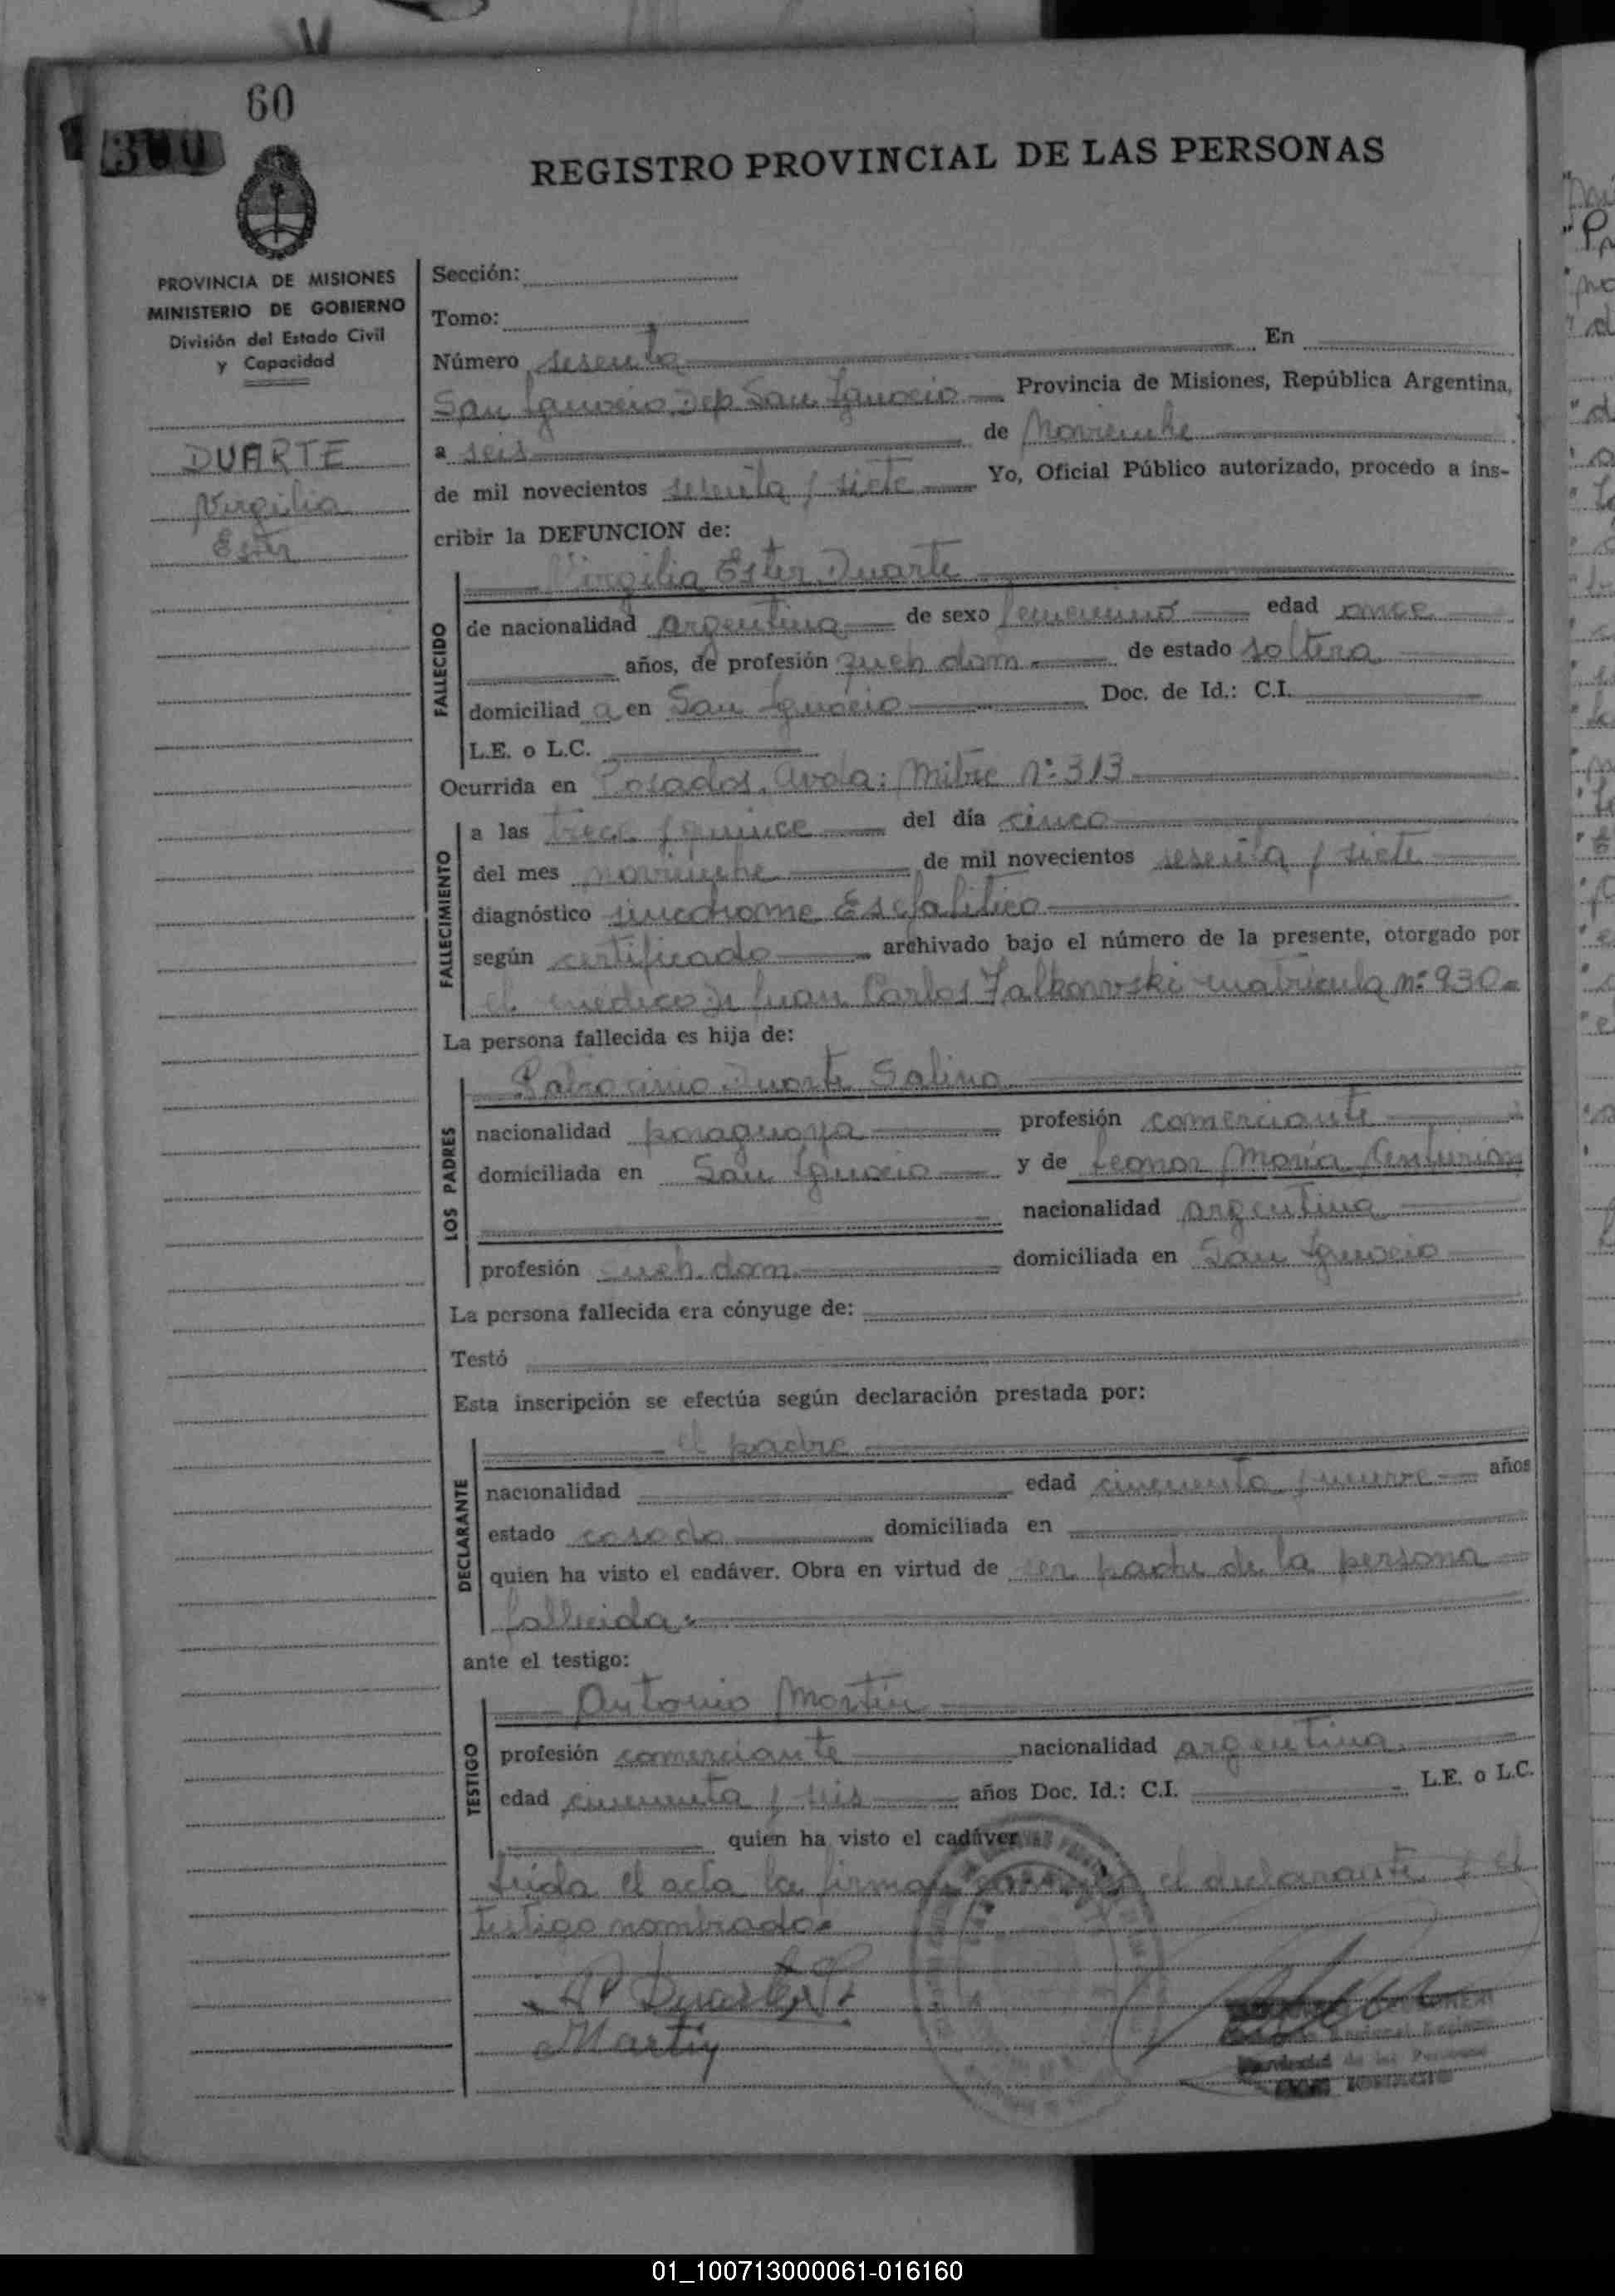 60
300
REGISTRO PROVINCIAL DE LAS PERSONAS
PROVINCIA DE MISIONES
MINISTERIO DE GOBIERNO
División del Estado Civil
y Capacidad
DUARTE
Virgilia
Ester
Sección:
Tomo:
Número sesenta En
San Ignacio, Dep San Ignacio Provincia de Misiones, República Argentina,
a seis de Noviembre
de mil novecientos sesenta y siete Yo, Oficial Público autorizado, procedo a ins-
cribir la DEFUNCION de:
FALLECIDO
Virgilia Ester Duarte
de nacionalidad argentina de sexo femenino edad once
años, de profesión queh dom de estado soltera
domiciliad a en San Ignacio Doc. de Id.: C.I.
L.E. o L.C.
Ocurrida en Posadas, Avda: Mitre Nº 313
FALLECIMIENTO
a las trece y quince del día cinco
del mes noviembre de mil novecientos sesenta y siete
diagnóstico sindrome
según certificado archivado bajo el número de la presente, otorgado por
el médico Dr Juan Carlos Falkonvski matrícula nº 930
La persona fallecida es hija de:
LOS PADRES
Patrocinio Duarte Salina
nacionalidad paraguaya profesión comerciante
domiciliada en San Ignacio y de Leonor María Centurión
nacionalidad argentina
profesión queh. dom domiciliada en San Ignacio
La persona fallecida era cónyuge de:
Testó
Esta inscripción se efectúa según declaración prestada por:
DECLARANTE
el padre
nacionalidad edad cincuenta y nueve años
estado casado domiciliada en
quien ha visto el cadáver. Obra en virtud de ser padre de la persona
fallecida
ante el testigo:
TESTIGO
Antonio Martin
profesión comerciante nacionalidad argentina
edad cincuenta y seis años Doc. Id.: C.I. L.E. o L.C.
quien ha visto el cadáver
Leída el acta la firman conmigo el declarante y el
testigo nombrado
Duarte
Martin
01_100713000061-016160